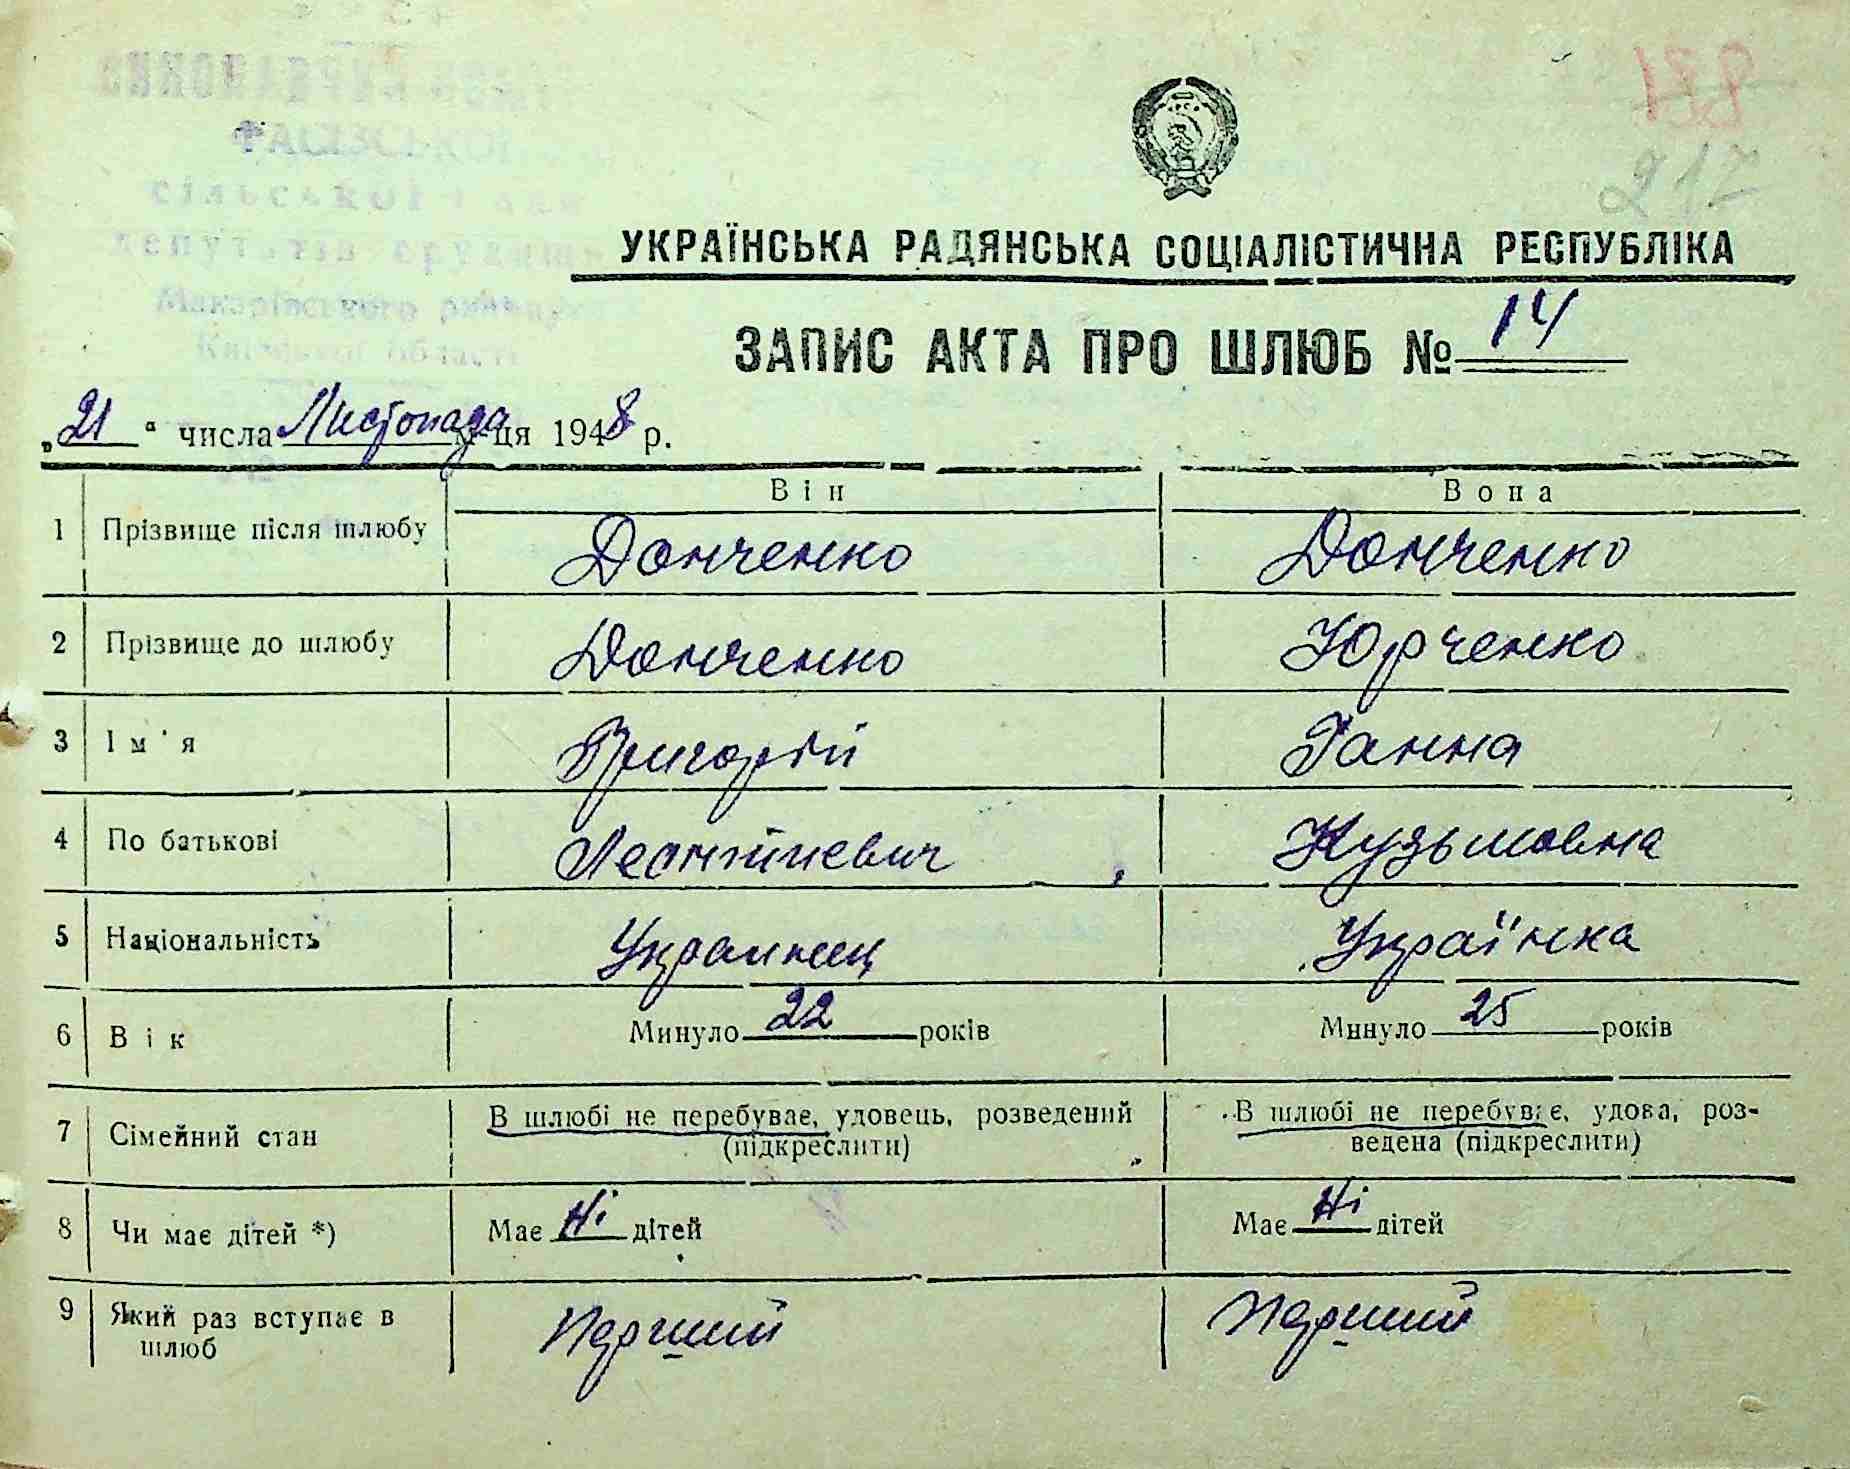 271
217
ВИКОНАВЧИЙ
ФАСІВСЬКОЇ
сільської ради
депутатів трудящих
Макарівського району
Київської області
УКРАЇНСЬКА РАДЯНСЬКА СОЦІАЛІСТИЧНА РЕСПУБЛІКА
ЗАПИС АКТА ПРО ШЛЮБ № 14
„21“ числа Листопада м-ця 1948 р.
Він Вона
1 Прізвище після шлюбу Донченко Донченко
2 Прізвище до шлюбу Донченко Юрченко
3 Ім'я Григорій Ганна
4 По батькові Леонтійневич Кузьмовна
5 Національність Украинец Українка
6 Вік Минуло 22 років Минуло 25 років
7 Сімейний стан В шлюбі не перебуває, удовець, розведений В шлюбі не перебуває, удова, роз-
(підкреслити) ведена (підкреслити)
8 Чи має дітей *) Має Ні дітей Має Ні дітей
9 Який раз вступає в Перший Перший
шлюб